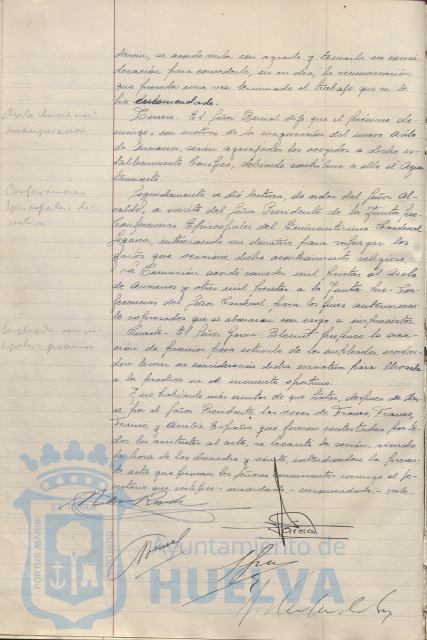 dencia, se acordó verla con agrado y tomarla en consi-
deración para concederle, en su día, la remuneración
que proceda una vez terminado el trabajo que se le
ha encomendado.
Asilo Ancianos:
inauguración
Tercero. El Señor Bernal dijo que el próximo do-
mingo, con motivo de la inauguración del nuevo Asilo
de Ancianos, serán agasajados los acogidos a dicho es-
tablecimiento benéfico, debiendo contribuir a ello el Ayun-
tamiento.
Conferencias
Episcopales: do-
nativo
Seguidamente se dió lectura, de orden del Señor Al-
calde, a escrito del Señor Presidente de la Junta
Conferencias Episcopales del Eminentísimo Cardenal
Segura, interesando un donativo para sufragar los
gastos que ocasione dicho acontecimiento religioso.
La Comisión acordó conceder mil pesetas al Asilo
de Ancianos y otras mil pesetas a la Junta
del Señor Cardenal, para los fines anteriormen-
te expresados que se abonarán con cargo a imprevistos.
Empleados muni-
cipales: premios
Cuarto. El Señor García propuso la crea-
ción de premios para estímulo de los empleados, acordán-
dose tomar en consideración dicha iniciativa para llevarla
a la práctica en el momento oportuno.
Y no habiendo más asuntos de que tratar, después de dar-
se por el Señor Presidente las voces de Franco, Franco,
Franco, y Arriba España, que fueron contestadas por to-
dos los asistentes al acto, se levantó la sesión, siendo
la hora de las dieciocho y veinte, extendiéndose la presen-
te acta que firman los Señores concurrentes conmigo el Se-
cretario que certifico.
García
Bernal
PORTUS MARIS
ET TERRAE
CUSTODIA
Ayuntamiento de
HUELVA